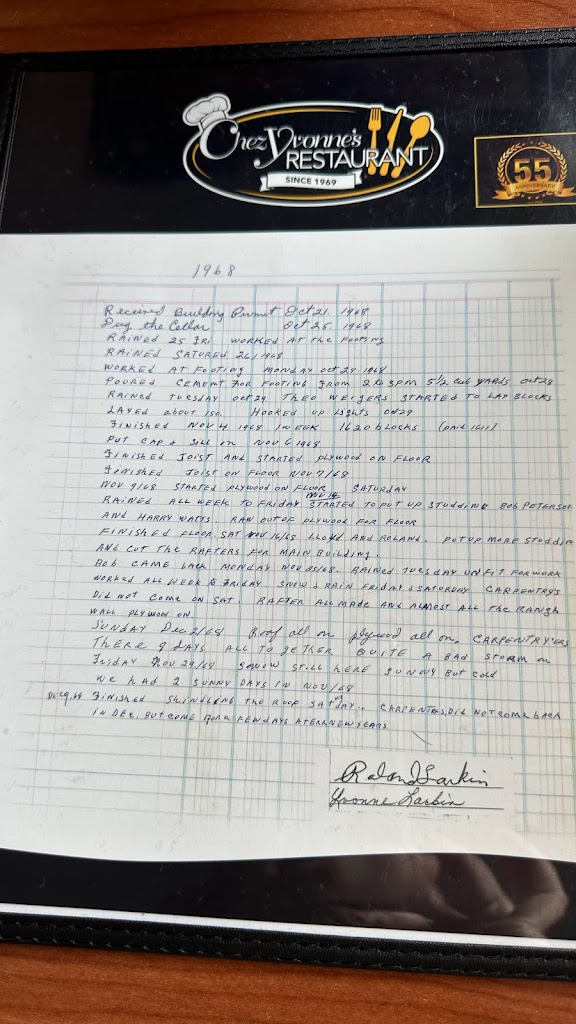 Chez Yvonne's
RESTAURANT
SINCE 1969
55
ANNIVERSARY
1968
Received Building Permit Oct 21 1968
Dug the Cellar Oct 25 1968
RAINED 25 FRI WORKED AT THE FOOTING
RAINED SATURED 26, 1968
WORKED AT FOOTING MONDAY OCT 28 1968
POURED CEMENT FOR FOOTING FROM 2 to 3PM 5 1/2 CUB YARDS Oct 28
RAINED TUESDAY OCT 29 THEO WEIGERS STARTED TO LAY BLOCKS
LAYED about 150. HOOKED UP LIGHTS Oct 29
FINISHED NOV 4 1968 1 WEEK 1620 BLOCKS (paid 1611)
PUT CAP & SILL ON NOV 6 1968
FINISHED JOIST AND STARTED PLYWOOD ON FLOOR
FINISHED JOIST ON FLOOR NOV 7/68
NOV 9/68 STARTED PLYWOOD ON FLOOR SATURDAY
RAINED ALL WEEK TO FRIDAY NOV 14 STARTED TO PUT UP STUDDING BOB PETERSON
AND HARRY WATTS. RAN OUT OF PLYWOOD FOR FLOOR
FINISHED FLOOR SAT NOV 16/68 LLOYD AND ROLAND. PUT UP MORE STUDDIN
AND CUT THE RAFTERS FOR MAIN BUILDING.
Bob CAME BACK MONDAY NOV 25/68. RAINED TUESDAY UNFIT FOR WORK
WORKED ALL WEEK to FRIDAY SNOW & RAIN FRIDAY & SATURDAY CARPENTRYS
DID NOT COME ON SAT. RAFTER ALL MADE AND ALMOST ALL THE
WALL PLYWOOD ON.
SUNDAY DEC 2/68 Roof all on plywood all on. CARPENTRY'ERS
THERE 9 DAYS ALL TO GETHER QUITE A BAD STORM on
FRIDAY NOV 29/68 SNOW STILL HERE SUNNY BUT COLD
WE HAD 2 SUNNY DAYS IN NOV/68
FINISHED SHINGLING THE ROOF SATDAY. CARPENTERS, DID NOT COME BACK
IN DEC, BUT COME FOR A FEW DAYS ATER NEW YEARS
Roland Larkin
Yvonne Larkin